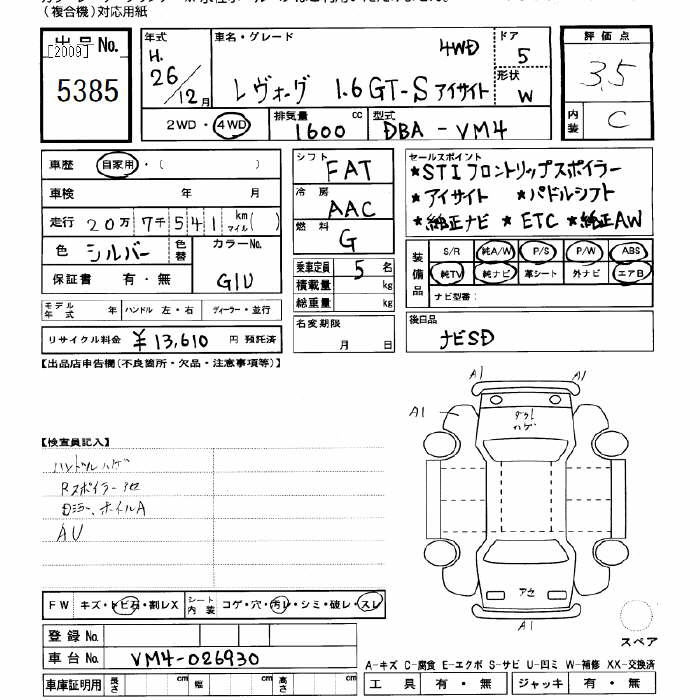 (複合機)対応用紙
出品No.
[2009]
5385
年式
H.
26/12月
車名・グレード
4WD
レヴォーグ 1.6 GT-S アイサイト
ドア
5
形状
W
評価点
3.5
内装
C
2WD・4WD
排気量
1600 cc
型式
DBA - VM4
車歴 自家用・( )
車検 年 月
走行 20万 7千 5 4 1 km マイル( )
色 シルバー
色替
カラーNo.
G1U
保証書 有・無
モデル年式 年
ハンドル 左・右
ディーラー・並行
リサイクル料金 ¥13,610 円 預託済
シフト FAT
冷房 AAC
燃料 G
乗車定員 5 名
積載量 kg
総重量 kg
名変期限
月 日
セールスポイント
★STIフロントリップスポイラー
★アイサイト ★パドルシフト
★純正ナビ ★ETC ★純正AW
装備品
S/R 純A/W P/S P/W ABS
純TV 純ナビ 革シート 外ナビ エアB
ナビ型番:
後日品
ナビSD
【出品店申告欄(不良箇所・欠品・注意事項等)】
【検査員記入】
ハンドルハゲ
Rスポイラー
ホイルA
AU
A1 A1
A1
ハゲ
アセ
A1
スペア
FW キズ・トビ石・割レX
シート内装 コゲ・穴・汚レ・シミ・破レ・スレ
登録No.
車台No. VM4-026930
車庫証明用 長さ cm 幅 cm 高さ cm
A-キズ C-腐食 E-エクボ S-サビ U-凹ミ W-補修 XX-交換済
工具 有・無 ジャッキ 有・無